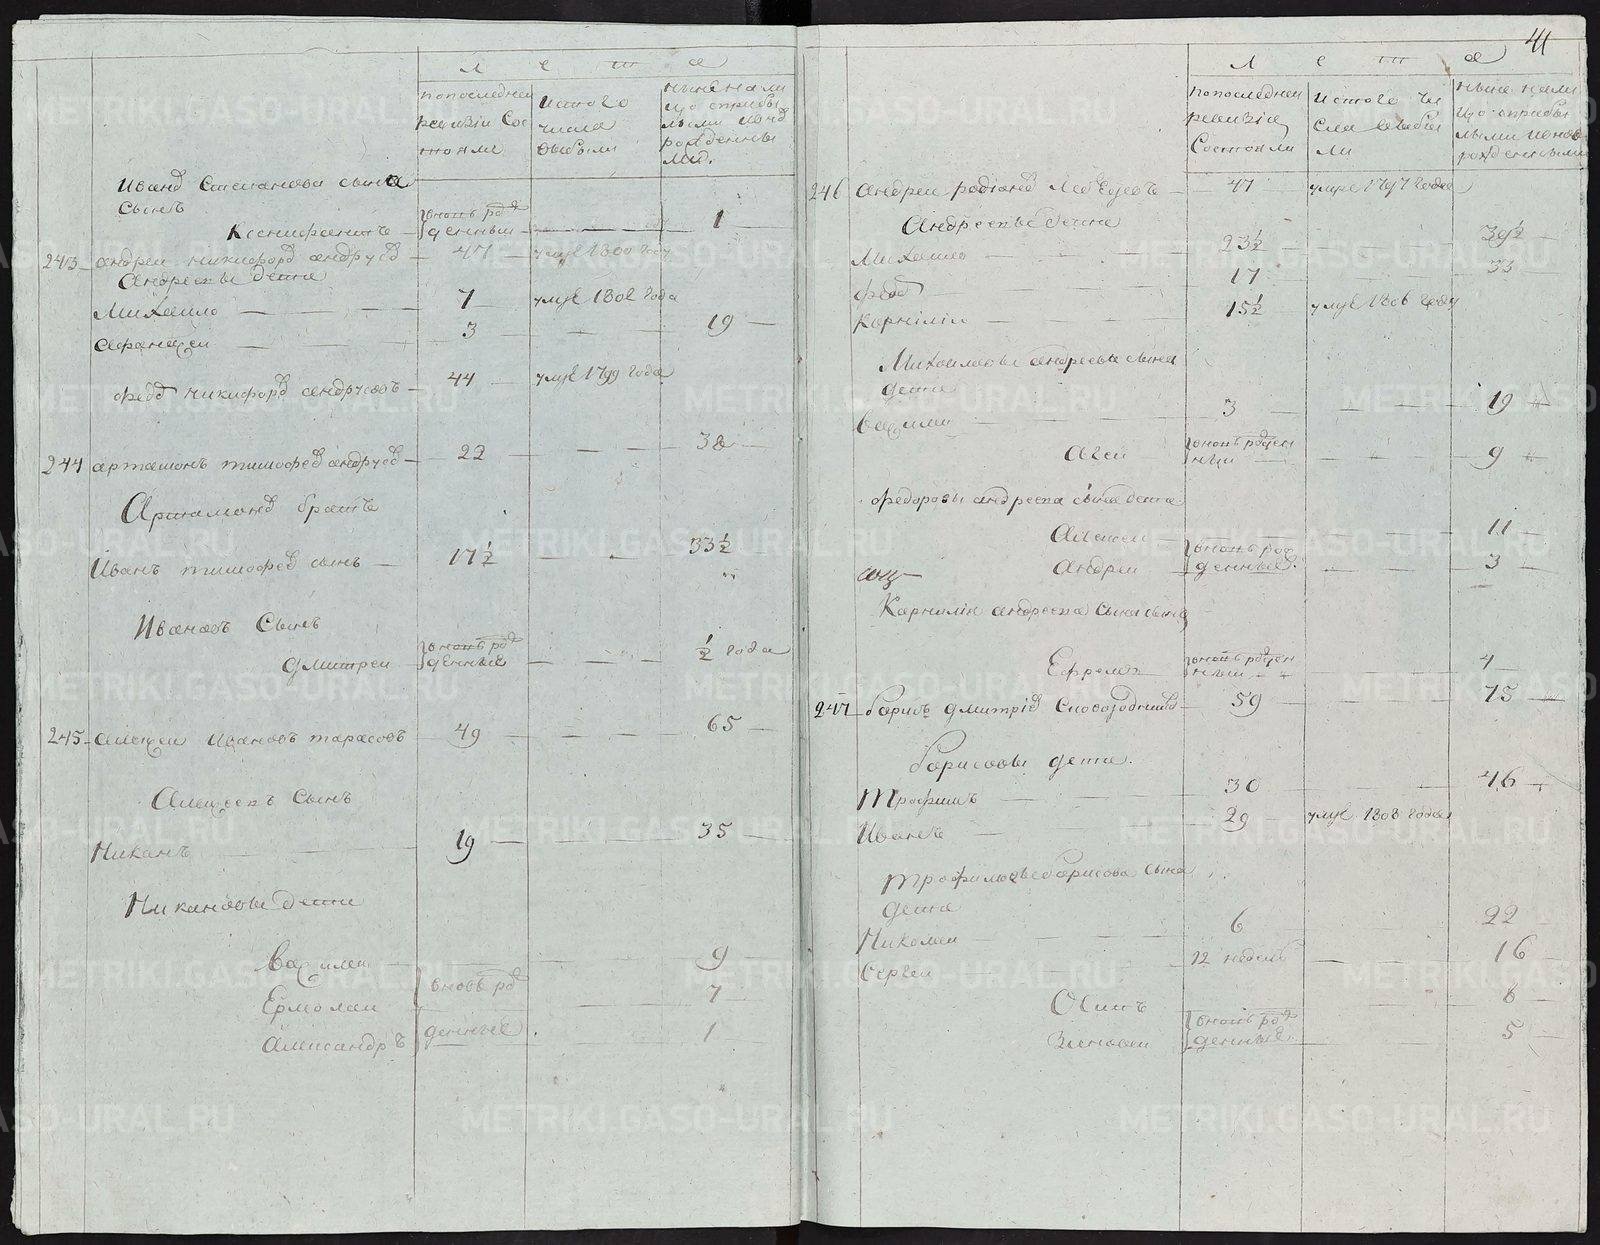 41
Л е т а
попоследней ревизии Состояли
Исъ того числа выбыли
ныне нали цо сприбы лыми ивнов рожденны ми.
Иванова Степанова сына
Сынъ
Ксенифонтъ — вновь рожденный — 1
243 Андреи никифоров андруев — 47 — умре 1800 году
Андреевы дети
Михаило — 7 — умре 1802 года
Афанасеи — 3 — 19
Федор никифоров андруевъ — 44 — умре 1799 года
244 артамонъ тимофеев андруев — 22 — 38
Артамонов братъ
Иванъ тимофеев сынъ — 17½ — 33½
Ивановъ Сынъ
дмитреи — вновь рожденные — ½ года
245 алексеи Ивановъ тарасовъ — 49 — 65
Алексеевъ Сынъ
Никанъ — 19 — 35
Никановы дети
Василеи — 9
Ермолаи — вновь рож — 7
Александръ — денные — 1
Л е т а
попоследней ревизии Состояли
Исъ того чи сла выбы ли
ныне нали цо сприбы лыми ивнов рожденными
246 андреи родионов — 47 — умре 1797 года
Андреевы дети
Михаило — 23½ — 39½
Федор — 17 — 33
Корнилии — 15½ — умре 1806 году
Михаиловы андреева сына
дети
василеи — 3 — 19
Агеи — вновь рожден ныи — 9
Федоровы андреева сына дети
Алексеи — 11
Андреи — вновь рожденные — 3
Корнилия андреева сына сынъ
Ефремъ — вновь рожден ныи — 4
247 борисъ дмитриев — 59 — 75
борисовы дети.
Трофимъ — 30 — 46
Иванъ — 29 — умре 1808 года
Трофимовы борисова сына
дети
Николаи — 6 — 22
Сергеи — 12 недель — 16
Осипъ — 8
Зиновеи — вновь рожденные — 5
METRIKI.GASO-URAL.RU